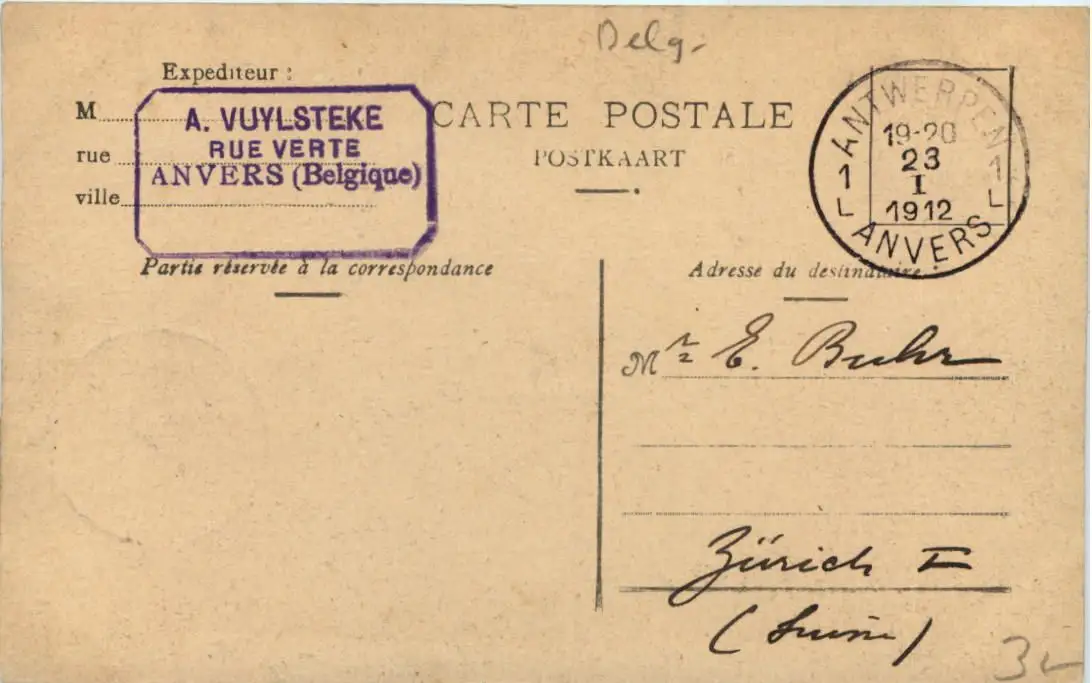 Belg.
Expediteur :
M
rue
ville
A. VUYLSTEKE
RUE VERTE
ANVERS (Belgique)
CARTE POSTALE
POSTKAART
ANTWERPEN
19-20
23
I
1912
1 L 1 L
ANVERS
Partie réservée à la correspondance
Adresse du destinataire
Mr E. Buhr
Zürich I
(Suisse)
3